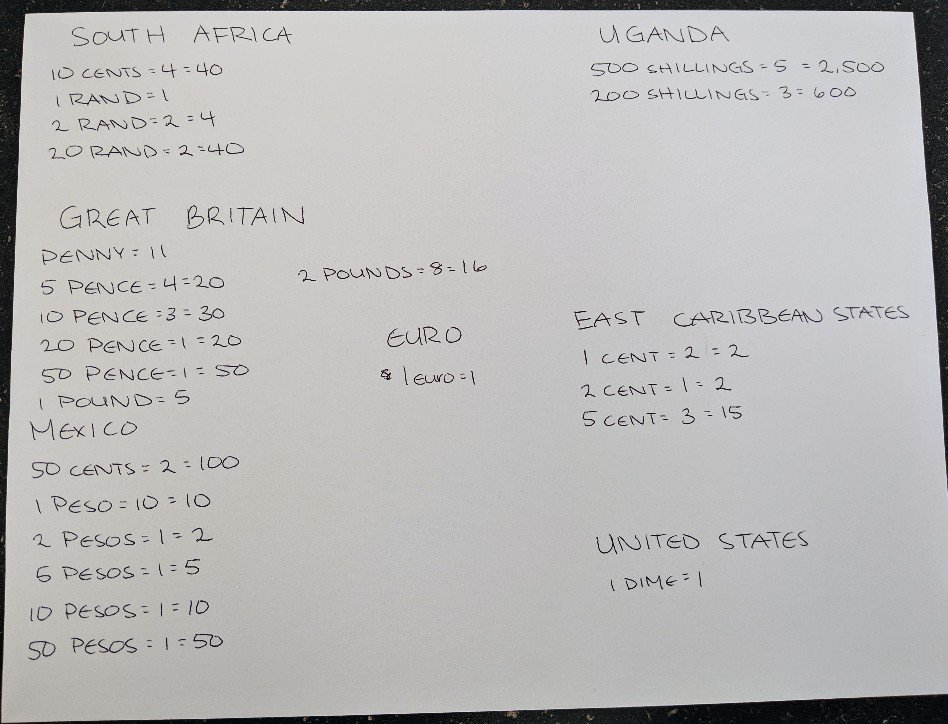 SOUTH AFRICA
10 CENTS = 4 = 40
1 RAND = 1
2 RAND = 2 = 4
20 RAND = 2 = 40
UGANDA
500 SHILLINGS = 5 = 2,500
200 SHILLINGS = 3 = 600
GREAT BRITAIN
PENNY = 11
5 PENCE = 4 = 20
10 PENCE = 3 = 30
20 PENCE = 1 = 20
50 PENCE = 1 = 50
1 POUND = 5
2 POUNDS = 8 = 16
EURO
1 EURO = 1
EAST CARIBBEAN STATES
1 CENT = 2 = 2
2 CENT = 1 = 2
5 CENT = 3 = 15
MEXICO
50 CENTS = 2 = 100
1 PESO = 10 = 10
2 PESOS = 1 = 2
5 PESOS = 1 = 5
10 PESOS = 1 = 10
50 PESOS = 1 = 50
UNITED STATES
1 DIME = 1